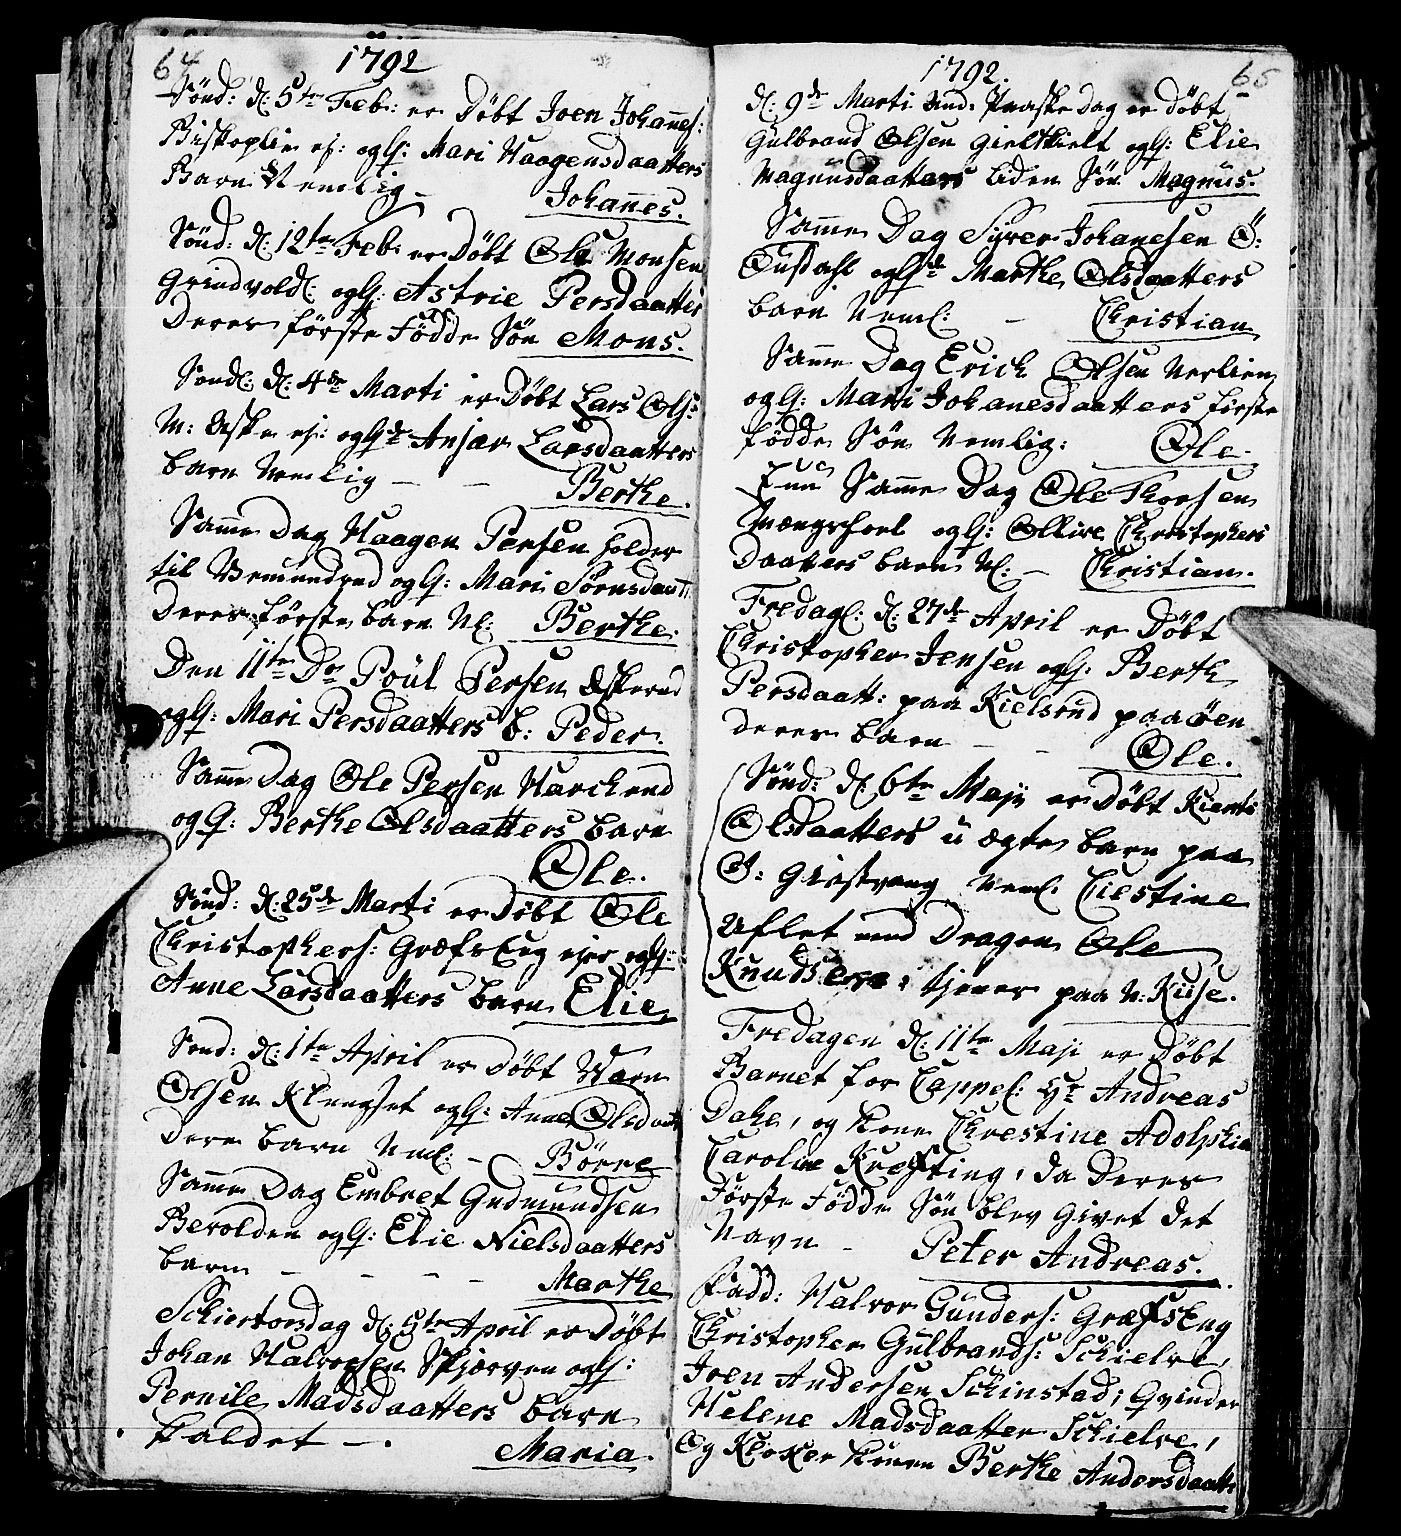 64
1792
Sønd: d: 5te Feb: er Døbt Joen Johannes:
Biskoplie ej: oghs: Mari Haagensdaatters
Barn Nemlig - Johannes.
Sønd: d: 12te Feb: er Døbt Ole Monsen
Grindvold: oghs: Astrie Persdaatters
Deres første Fødde Søn Mons.
Sønd: d: 4de Marti er Døbt Lars Ols:
M: Aske ej: oghs: Anjar Larsdaatters
barn Nemlig - - Berthe.
Samme Dag Haagen Persen holder
til Vemundrud oghs: Mari Sørnsdaatt
Deres første barn Nl: Berthe.
Den 11te Do Poul Persen Askerud
oghs: Mari Persdaatters b: Peder.
Samme Dag Ole Persen
oghs: Berthe Olsdaatters barn
Ole.
Sønd: d: 25de Marti er Døbt Ole
Christophers: Græfs Eng ejer oghs:
Anne Larsdaatters barn Elie
Sønd: d: 1te April er Døbt
Olsen Klengset oghs: Anne Olsdaatt
Deres barn Neml: - Børre
Samme Dag Embret Gudmundsen
Berolden oghs: Elie Nielsdaatters
barn - - - - Marthe
Schiertorsdag d: 5te April er Døbt
Johan Halvorsen Skjærven oghs:
Pernile Madsdaatters barn
kaldet - . Maria.
1792.
65
d: 9de Marti 2nd: Paaske Dag er døbt
Gulbrand Olsen oghs: Elie
Magnusdaatters liden Søn Magnus.
Samme Dag Syver Johanesen Ø:
Øusdahl oghs: Marthe Olsdaatters
barn Neml: - Christian
Samme Dag Erich Olsen Verlien
oghs: Mari Johanesdaatters første
fødde Søn Nemlig: Ole.
Samme Dag Ole Thorsen
oghs: Ollive Christophers
Daatters barn Nl: - Christian.
Fredag: d: 27de April er Døbt
Christopher Jensen oghs: Berth
Persdaatt: paa Kielsrud paa Øen
deres barn - - Ole.
Sønd: d: 6te Maji er Døbt
Olsdaatters u ægte barn paa
Ø: Neml: Chestine
Aflet med Dragon Ole
Knudsen: tjener paa N: Kuse.
Fredagen d: 11te Maji er Døbt
Barnet for Cappel: Hr Andreas
Dahe, og Kone Chrestine Adolphia
Caroline Kræfting, da Deres
Første Fødde Søn blev Givet det
Navn - Peter Andreas.
Fadd: Halvor Gunders: Græfs Eng
Christopher Gulbrands: Schielve,
Joen Andersen Schinstad; Qvinder
Helene Madsdaatter Schielve,
Og Klokker Konen Berthe Andersdaatt: